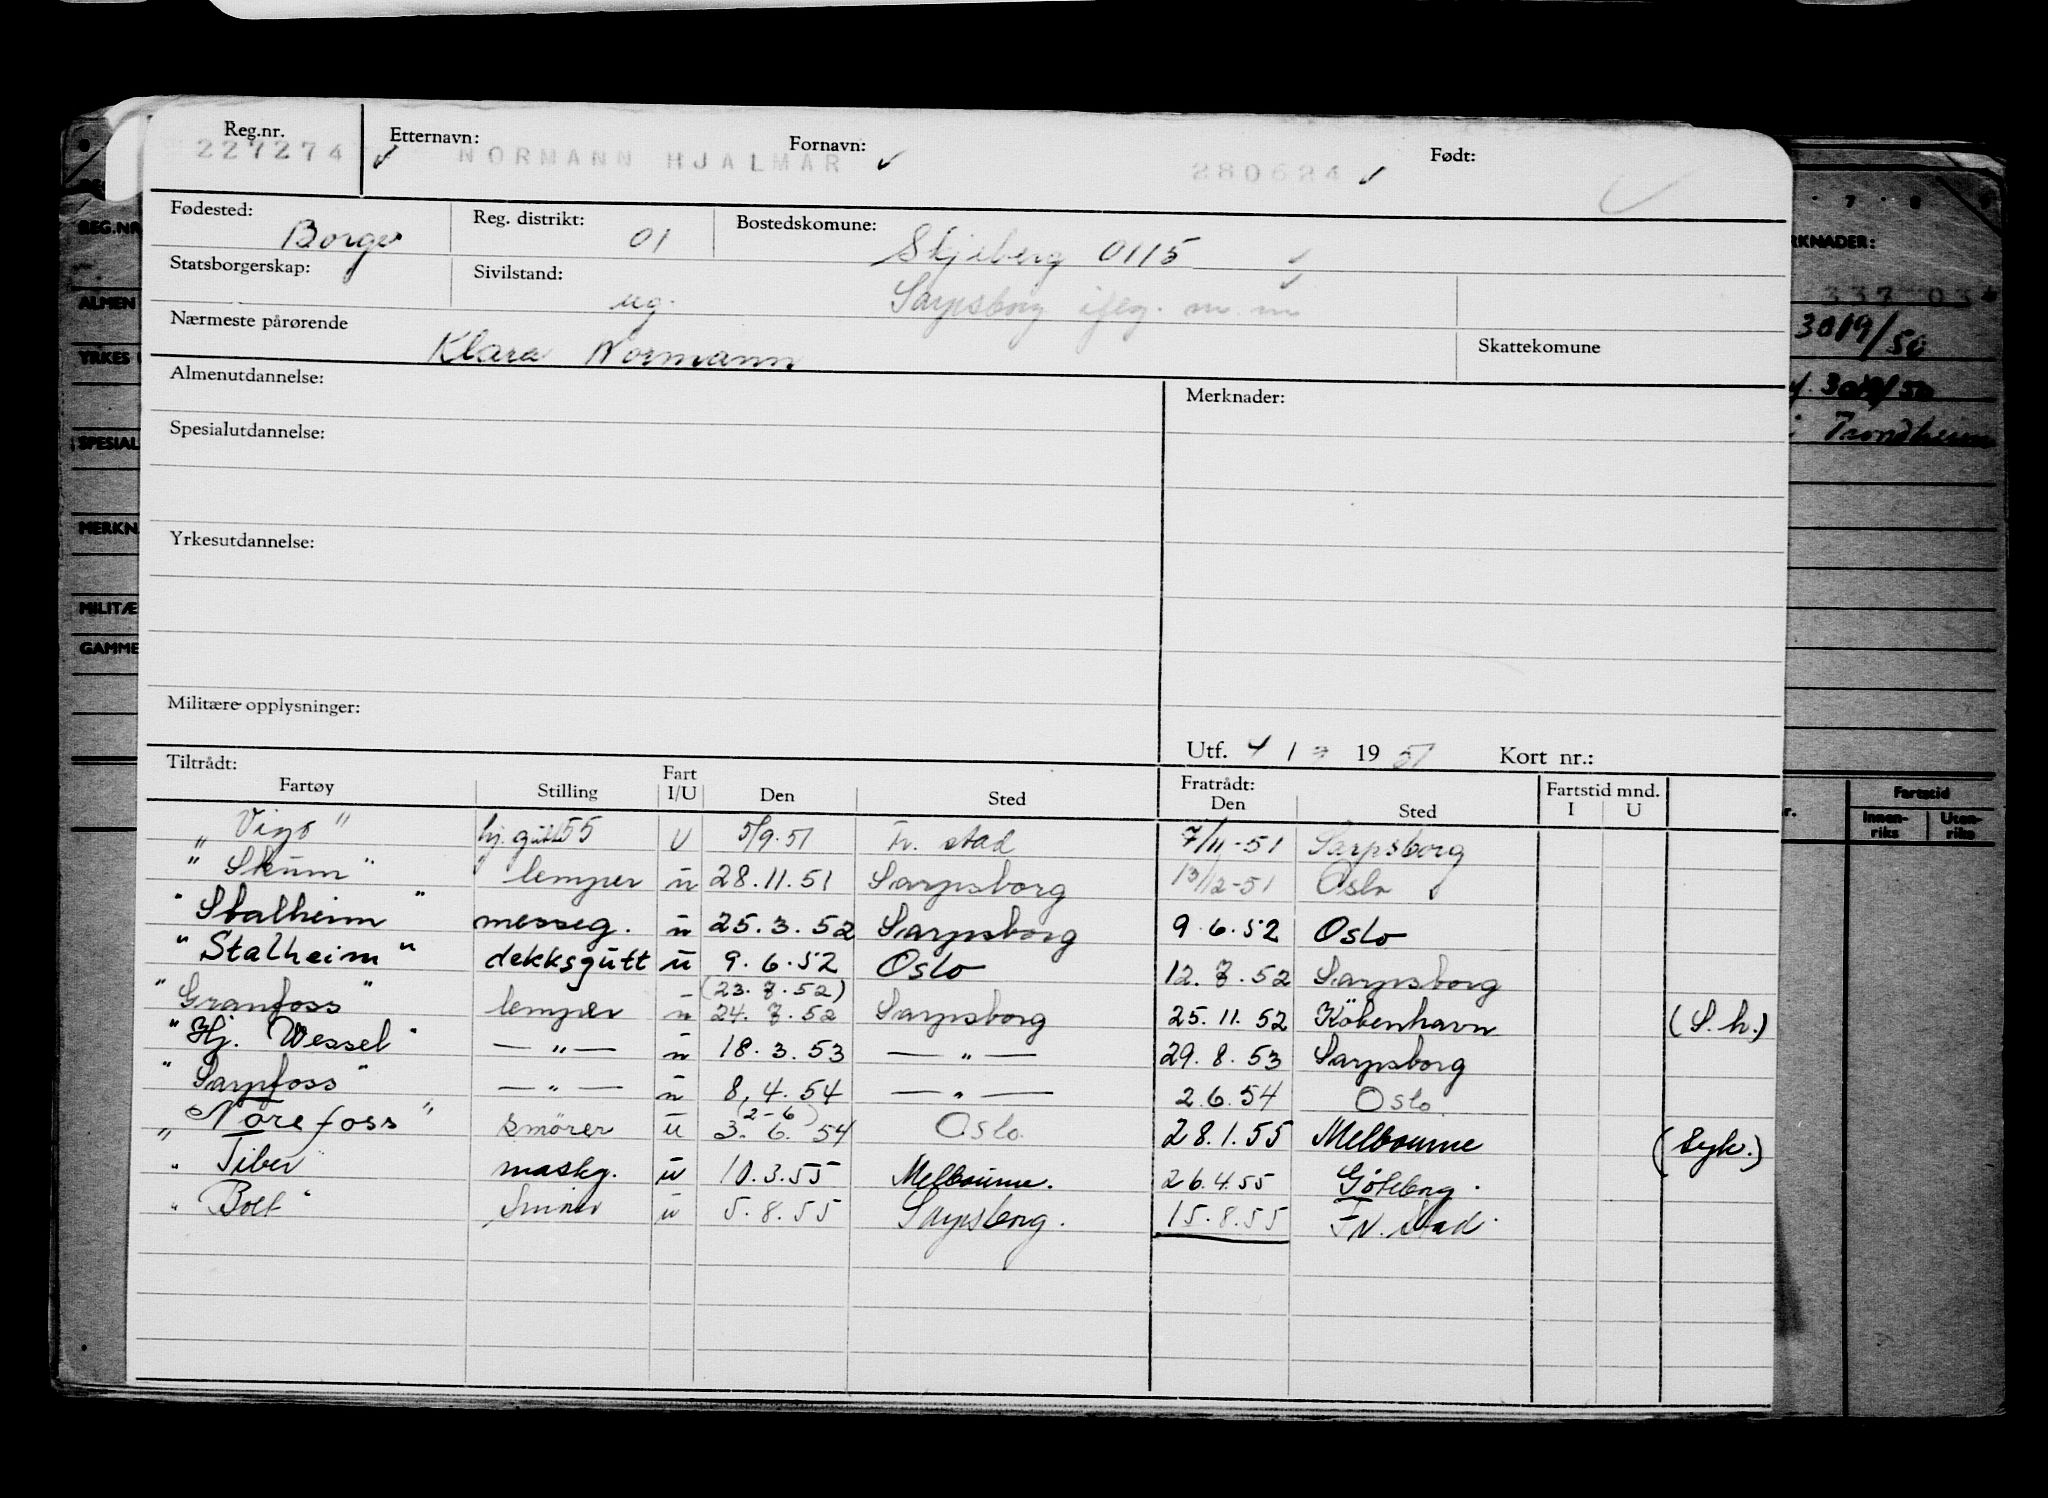 Reg.nr. Etternavn: Fornavn: Født:
227274 NORMANN HJALMAR 280624
Fødested: Borge Reg. distrikt: 01 Bostedskomune: Skjeberg 0115
Statsborgerskap: Sivilstand: ug. Sarpsborg
Nærmeste pårørende Klara Normann Skattekomune
Almenutdannelse: Merknader:
Spesialutdannelse:
Yrkesutdannelse:
Militære opplysninger:
Utf. 4 / 1951 Kort nr.:
Tiltrådt: Fart Fratrådt: Fartstid mnd.
Fartøy Stilling I/U Den Sted Den Sted I U
"Vigo" U 5/9.51 Fr. stad 7/11-51 Sarpsborg
"Skum" lemper u 28.11.51 Sarpsborg 13/12-51 Oslo
"Stalheim" messeg. u 25.3.52 Sarpsborg 9.6.52 Oslo
"Stalheim" dekksgutt u 9.6.52 Oslo 12.7.52 Sarpsborg
(23.7.52)
"Granfoss" lemper u 24.7.52 Sarpsborg 25.11.52 København (S.h.)
"Hj. Wessel" —"— u 18.3.53 —"— 29.8.53 Sarpsborg
"Sarpfoss" —"— u 8.4.54 —"— 2.6.54 Oslo.
(2-6)
"Norefoss" smörer u 3.6.54 Oslo. 28.1.55 Melbourne (Syk.)
"Tiber" maskg. u 10.3.55 Melbourne. 26.4.55 Göteborg.
"Bolt" Smörer u 5.8.55 Sarpsborg. 15.8.55 Fr. stad.
REG.NR
ALMEN
YRKES
SPESIAL
MERKN
MILITÆ
GAMME
7 8
RKNADER:
337 03
30/9/50
30/9/50
i Trondheim
Fartstid
Innen-riks Uten-riks